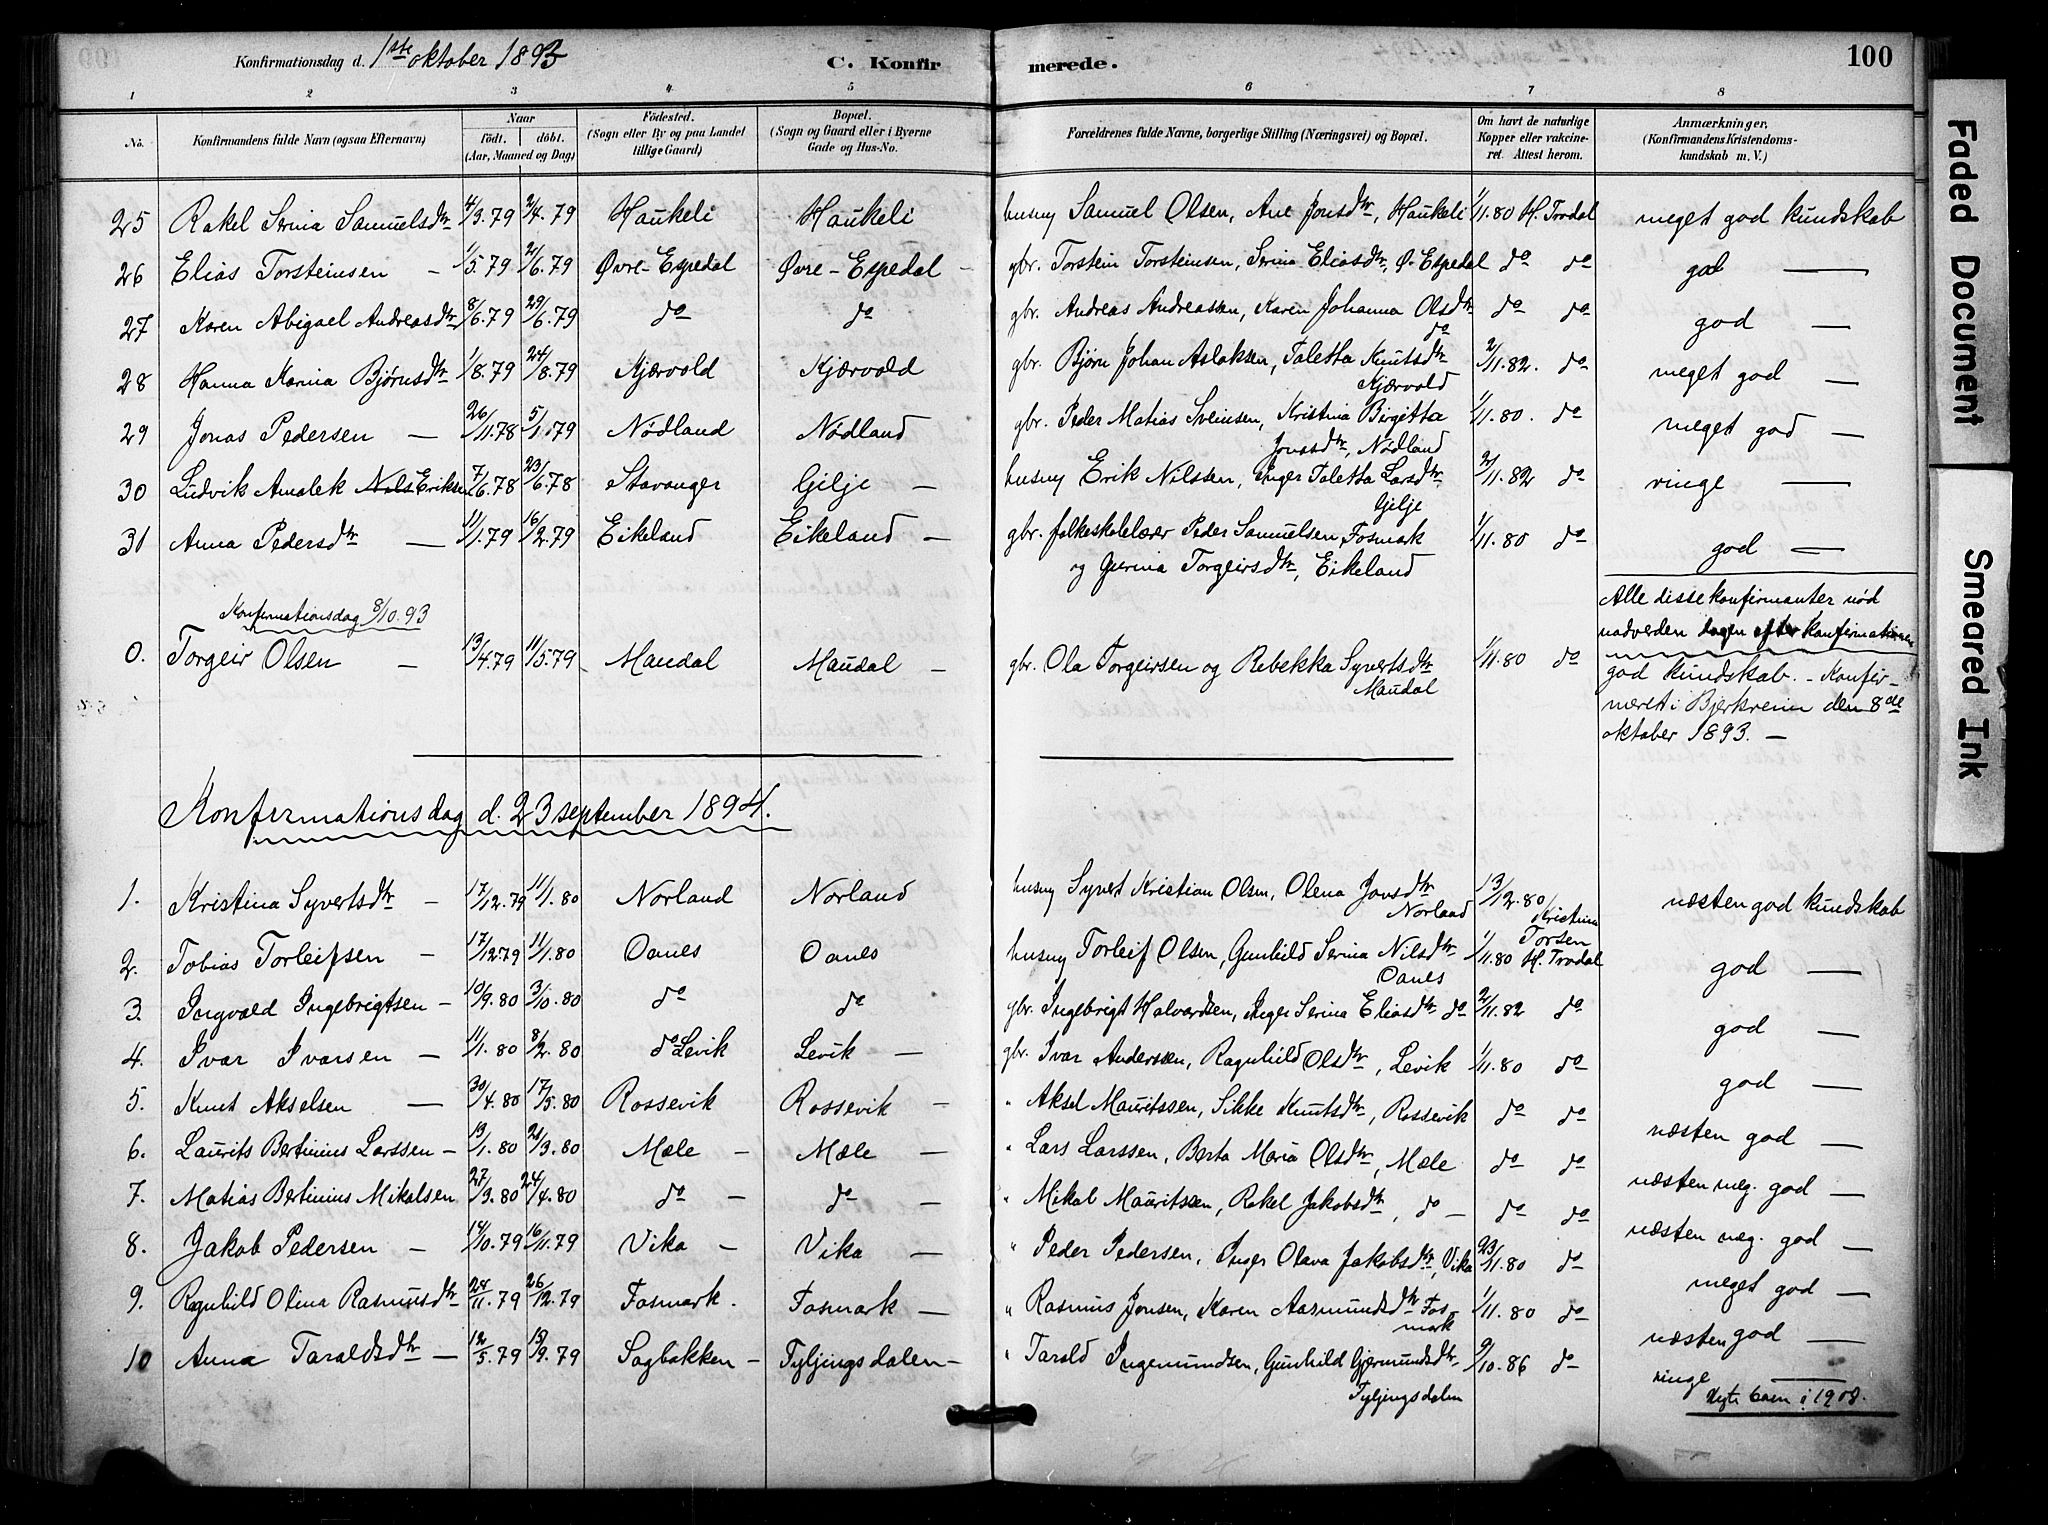 Konfirmationsdag d. 1ste oktober 1893 C. Konfirmerede. 100
1 2 3 4 5 6 7 8
No. Konfirmandens fulde Navn (ogsaa Efternavn) Naar födt. döbt. (Aar, Maaned og Dag) Födested. (Sogn eller By og paa Landet tillige Gaard) Bopæl. (Sogn og Gaard eller i Byerne Gade og Hus-No. Forældrenes fulde Navne, borgerlige Stilling (Næringsvei) og Bopæl. Om havt de naturlige Kopper eller vakcineret. Attest herom. Anmærkninger, (Konfirmandens Kristendomskundskab m. V.)
25 Rakel Serina Samuelsdtr 4/3.79 2/4.79 Haukeli Haukeli husmg Samuel Olsen, Ane Jonsdtr, Haukeli 1/11.80 H. Trodal meget god kundskab
26 Elias Torsteinsen — 1/5.79 2/6.79 Øvre-Espedal Øvre-Espedal — gbr. Torstein Torsteinsen, Serina Eliasdtr, Ø. Espedal do do god —
27 Karen Abigael Andreasdtr 8/6.79 29/6.79 do do gbr. Andreas Andreassen, Karen Johanna Olsdtr do do do god —
28 Hanna Karina Bjørnsdtr 1/8.79 24/8.79 Kjærvold Kjærvold gbr. Bjørn Johan Aslaksen, Taletta Knutsdtr Kjærvold 2/11.82. do meget god —
29 Jonas Pedersen — 26/11.78 5/1.79 Nødland Nødland gbr. Peder Matias Sveinsen, Kristina Birgitta Jonasdtr, Nødland 1/11.80. do meget god —
30 Ludvik Amalek Nils Eriksen 7/6.78 23/6.78 Stavanger Gilje — husmg Erik Nilssen, Inger Taletta Larsdtr, Gilje 2/11.82 do ringe —
31 Anna Pedersdtr — 11/1.79 16/2.79 Eikeland Eikeland — gbr. folkeskolelærer Peder Samuelsen, Fosmark og Gurina Torgeirsdtr, Eikeland 1/11.80 do god —
Alle disse konfirmanter nød nadverden dagen efter konfirmationen
Konfirmationsdag 8/10.93
0. Torgeir Olsen — 13/4.79 11/5.79 Maudal Maudal — gbr. Ola Torgeirsen og Rebekka Syvertsdtr Maudal 1/11.80 do god kundskab. - Konfirmeret i Bjerkreim den 8de oktober 1893. —
Konfirmationsdag d. 23 september 1894.
1. Kristina Syvertsdtr — 17/12.79 11/1.80 Norland Norland husmg Syvert Kristian Olsen, Olena Jonsdtr Norland 13/12.80 Kristina Torsen næsten god kundskab
2. Tobias Torleifsen — 17/12.79 11/1.80 Oanes Oanes husmg Torleif Olsen, Gunhild Serina Nilsdtr Oanes 1/11.80 H. Trodal god —
3. Ingvald Ingebrigtsen — 10/9.80 3/10.80 do do gbr. Ingebrigt Halvardsen, Inger Serina Eliasdtr do 2/11.82 do god —
4. Ivar Ivarsen — 11/1.80 8/2.80 do Levik Levik — gbr. Ivar Anderssen, Ragnhild Olsdtr, Levik 1/11.80 do god —
5. Knut Akselsen — 30/4.80 17/5.80 Rossevik Rossevik — " Aksel Mauritssen, Sikke Knutsdtr, Rossevik do do næsten god —
6. Laurits Bertinius Larssen — 13/1.80 21/3.80 Mæle — Mæle — " Lars Larssen, Berta Maria Olsdtr, Mæle do do næsten meg. god —
7. Matias Bertinius Mikalsen 27/3.80 24/4.80 do — do — " Mikal Mauritssen, Rakel Jakobsdtr, do — do do næsten meg. god —
8. Jakob Pedersen — 14/10.79 16/11.79 Vika — Vika — " Peder Pedersen, Inger Olava Jakobsdtr, Vika 23/11.80 do meget god —
9. Ragnhild Olina Rasmusdtr 24/11.79 26/12.79 Fosmark. Fosmark — " Rasmus Jonsen, Karen Aasmundsdtr Fosmark 1/11.80 do næsten god —
10 Anna Taraldsdtr — 12/5.79 13/9.79 Sagbakken — Tyljingsdalen — " Tarald Ingemundsen, Gunhild Gjermundsdtr Tyljingsdalen 9/10.86 do ringe —
1908.
Faded Document
Smeared Ink